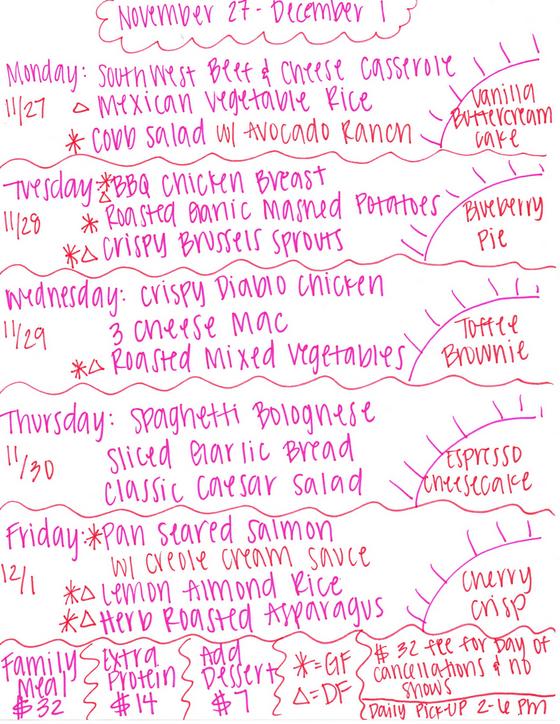 November 27 - December 1
Monday: Southwest Beef & Cheese Casserole
11/27 △ Mexican Vegetable Rice
* Cobb Salad w/ Avocado Ranch
Vanilla
Buttercream
Cake
Tuesday: *△ BBQ Chicken Breast
11/28 * Roasted Garlic Mashed Potatoes
*△ Crispy Brussels Sprouts
Blueberry
Pie
Wednesday: Crispy Diablo Chicken
11/29 3 Cheese Mac
*△ Roasted Mixed Vegetables
Toffee
Brownie
Thursday: Spaghetti Bolognese
11/30 Sliced Garlic Bread
Classic Caesar Salad
Espresso
Cheesecake
Friday: * Pan Seared Salmon
w/ Creole Cream Sauce
12/1 *△ Lemon Almond Rice
*△ Herb Roasted Asparagus
Cherry
Crisp
Family
Meal
$32
Extra
Protein
$14
Add
Dessert
$7
* = GF
△ = DF
$32 fee for Day of
Cancellations & no
shows
Daily Pick-UP 2-6 PM